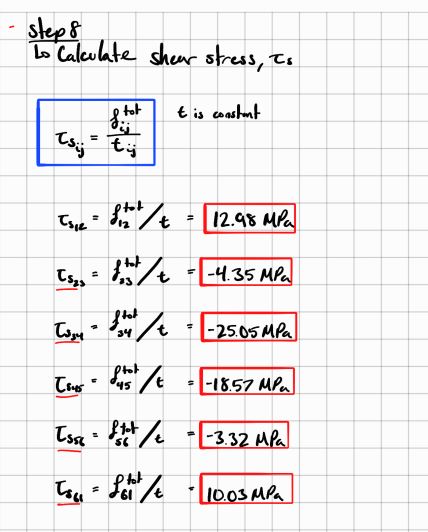 - Step 8
↳ Calculate shear stress, τs
τsij = fij^tot / tij    t is constant
τs12 = f12^tot / t = 12.98 MPa
τs23 = f23^tot / t = -4.35 MPa
τs34 = f34^tot / t = -25.05 MPa
τs45 = f45^tot / t = -18.57 MPa
τs56 = f56^tot / t = -3.32 MPa
τs61 = f61^tot / t = 10.03 MPa